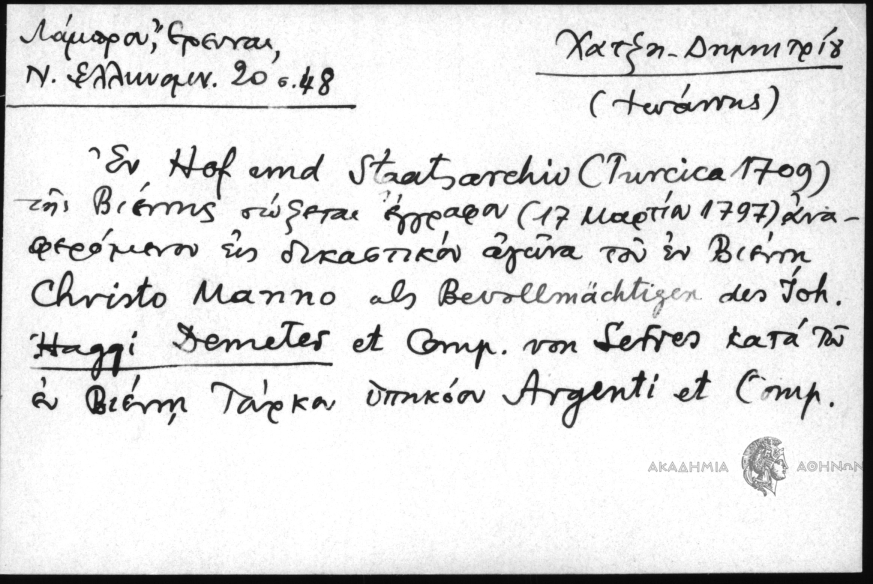 Λάμπρου, Ἔρευναι,
Ν. Ἑλληνομν. 20 σ. 48
Χατζη-Δημητρίου
(Ἰωάννης)
Ἐν Hof und Staatsarchiv (Turcica 1709)
τῆς Βιέννης σώζεται ἔγγραφον (17 Μαρτίου 1797) ἀνα-
φερόμενον εἰς δικαστικὸν ἀγῶνα τοῦ ἐν Βιέννῃ
Christo Manno als Bevollmächtigen des Joh.
Haggi Demeter et Comp. von Serres κατὰ τοῦ
ἐν Βιέννῃ Τούρκου ὑπηκόου Argenti et Comp.
ΑΚΑΔΗΜΙΑ ΑΘΗΝΩΝ